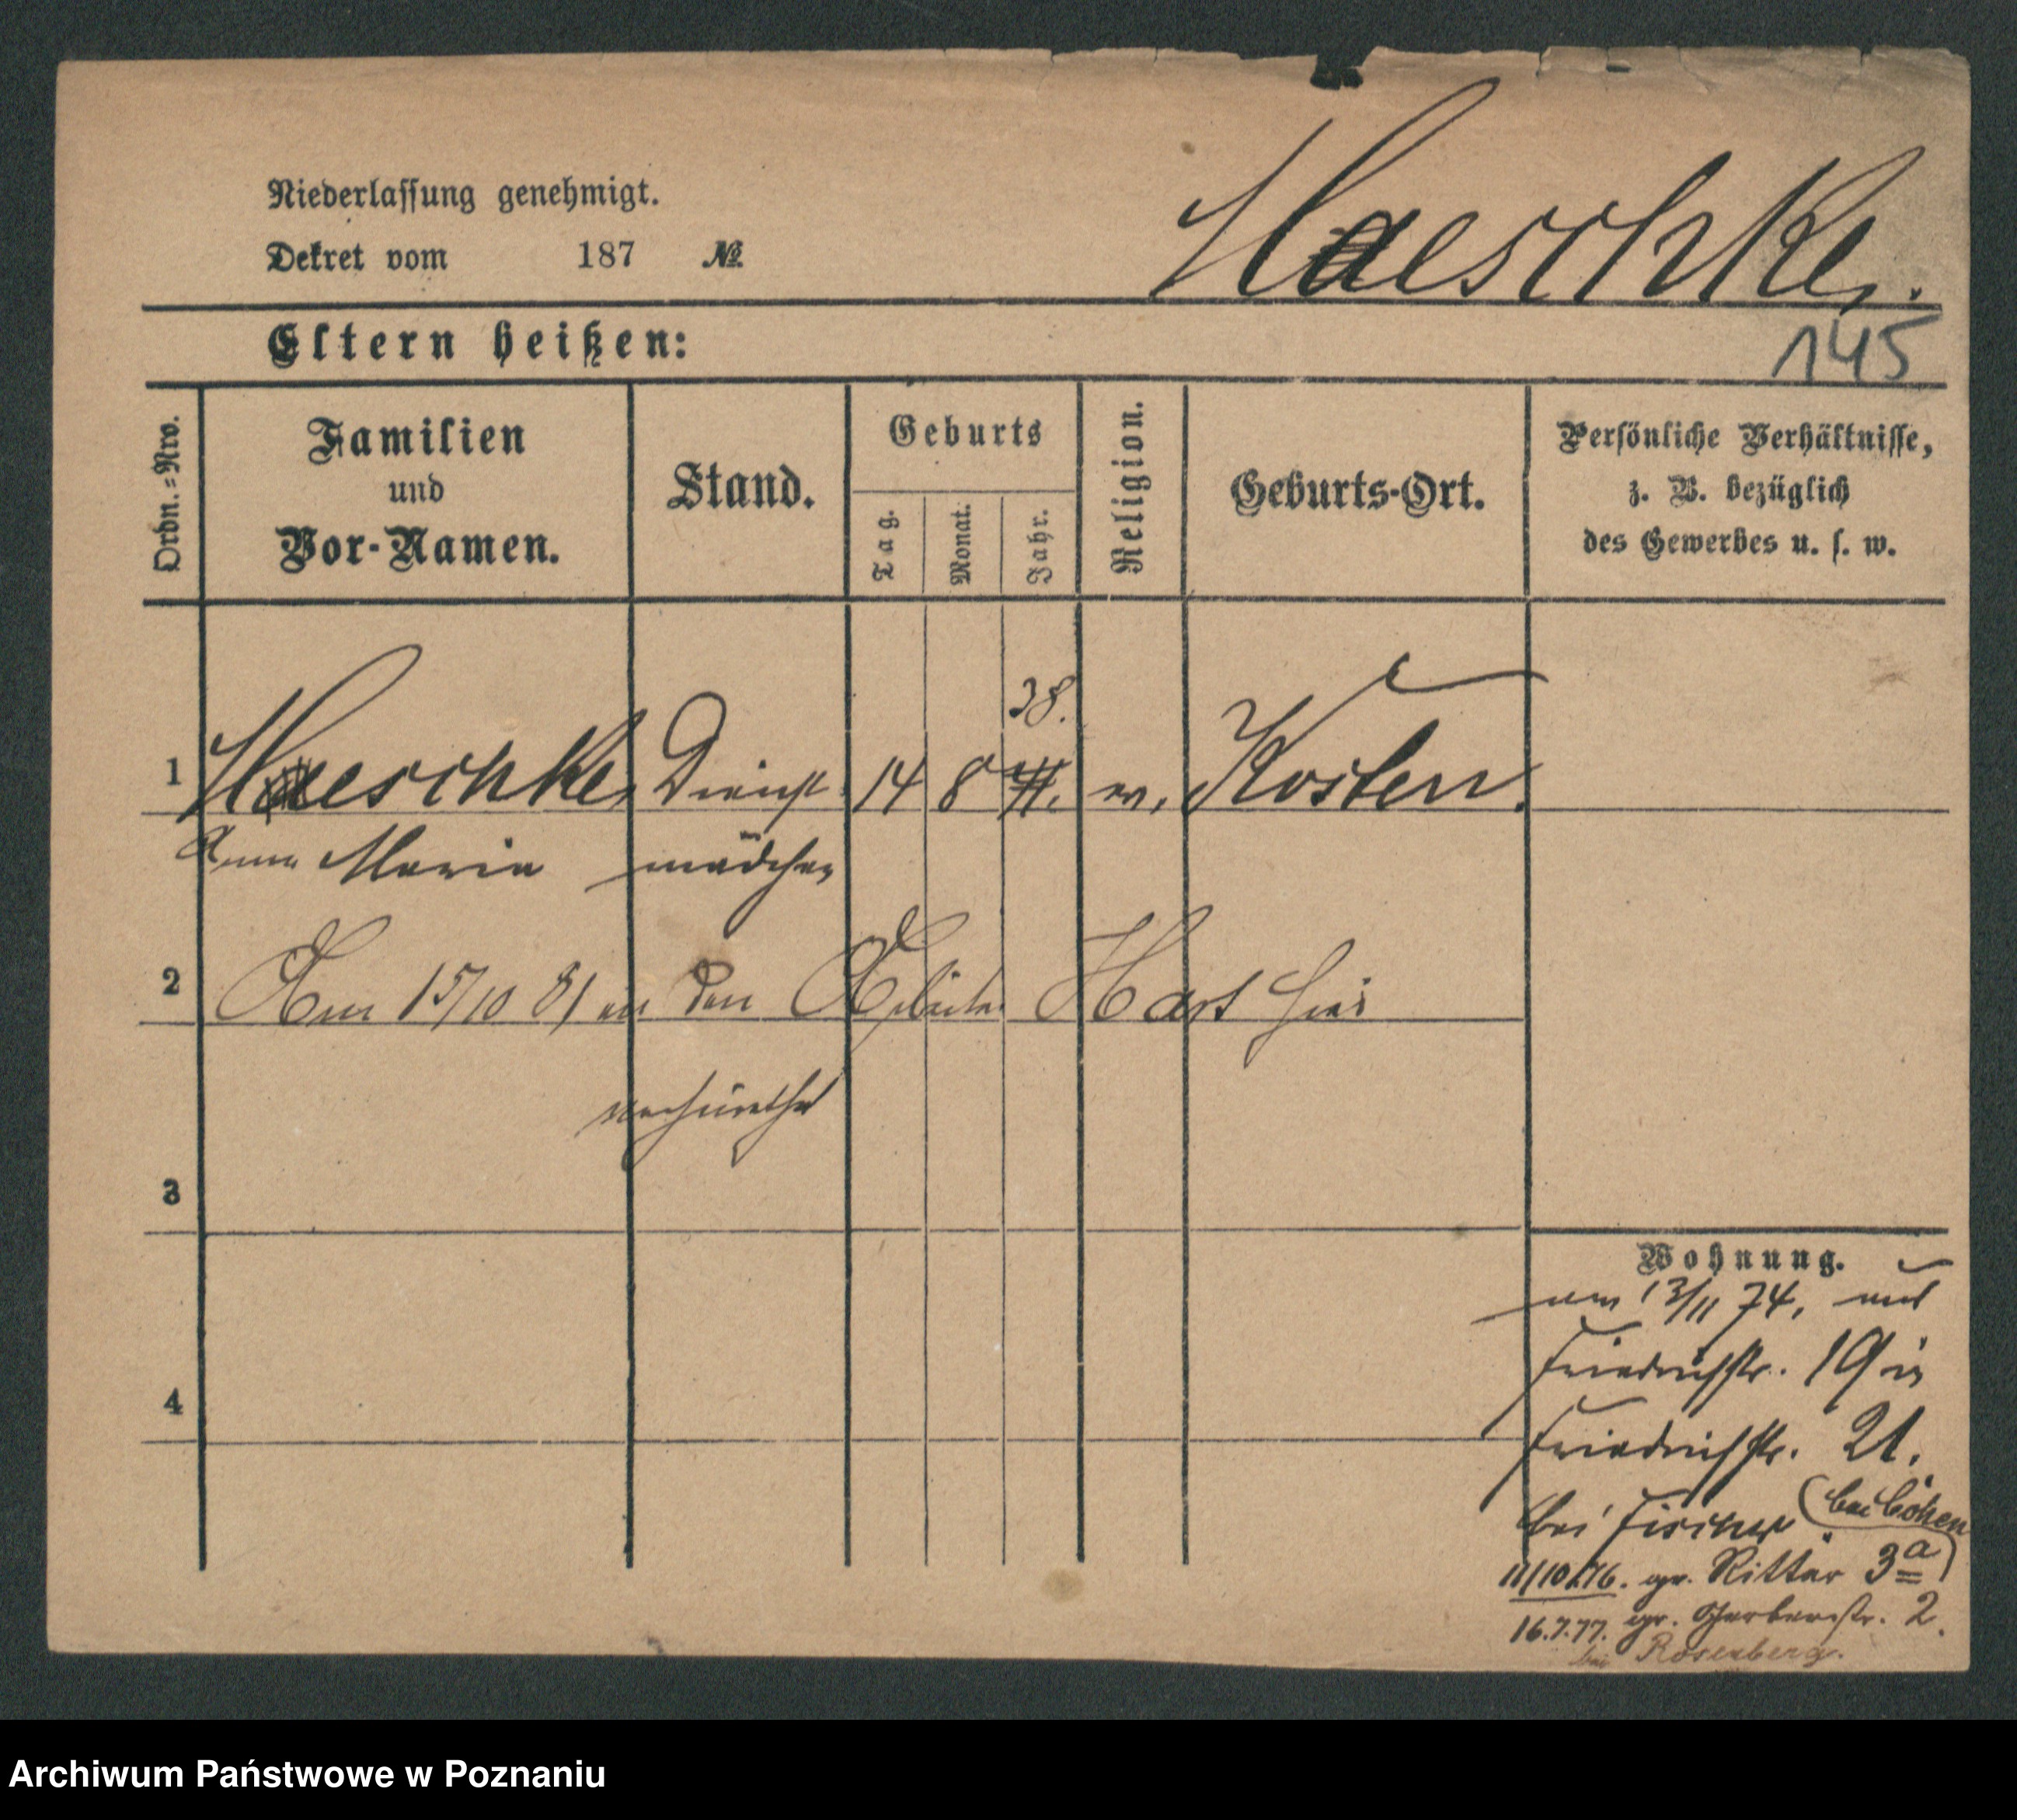 Niederlassung genehmigt.
Dekret vom 187 №
Haeschke.
145
Eltern heißen:
Ordn.-Nro.
Familien
und
Vor-Namen.
Stand.
Geburts
Tag.
Monat.
Jahr.
Religion.
Geburts-Ort.
Persönliche Verhältnisse,
z. B. bezüglich
des Gewerbes u. s. w.
38.
1 Haeschke, Dienst 14 8 Kosten.
Anna Maria mädchen
2 Am 15/10 81 an den Arbeiter Hart hier
verheirathet
3
4
Wohnung.
am 13/11 74, aus
Friedrichstr. 19 in
Friedrichstr. 21.
bei Fischer
11/10 76. gr. Ritter 3a
16.7.77. gr. Gerberstr. 2.
bei Rosenberg.
Archiwum Państwowe w Poznaniu